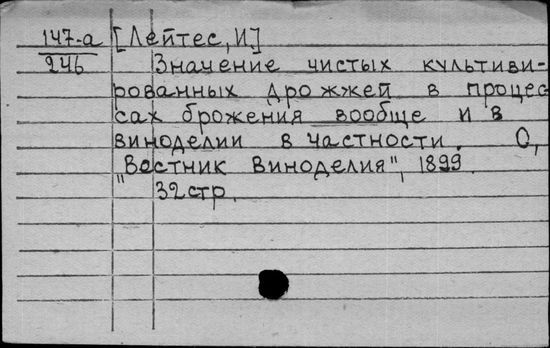 147-а [Лейтес, И]
246 Значение чистых культиви-
рованных дрожжей в процес
сах брожения вообще и в
виноделии в частности. О,
"Вестник Виноделия", 1899.
32 стр.